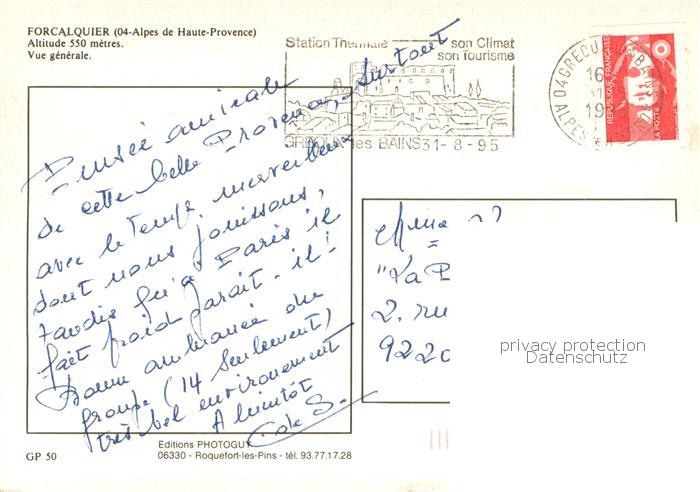 FORCALQUIER (04-Alpes de Haute-Provence)
Altitude 550 mètres.
Vue générale.
Station Thermale son Climat
son Tourisme
GREOUX les BAINS 31-8-95
04 GREOUX
ALPES
16
19
REPUBLIQUE FRANÇAISE
LA POSTE
Pensée amicale
de cette belle Provence, surtout
avec le temps merveilleux
dont nous jouissons,
tandis qu'à Paris il
fait froid paraît-il!
Bonne ambiance du
groupe (14 seulement)
très bel environnement
A bientôt
Mme
"La
2, ru
9220
privacy protection
Datenschutz
Editions PHOTOGUY
06330 - Roquefort-les-Pins - tél. 93.77.17.28
GP 50